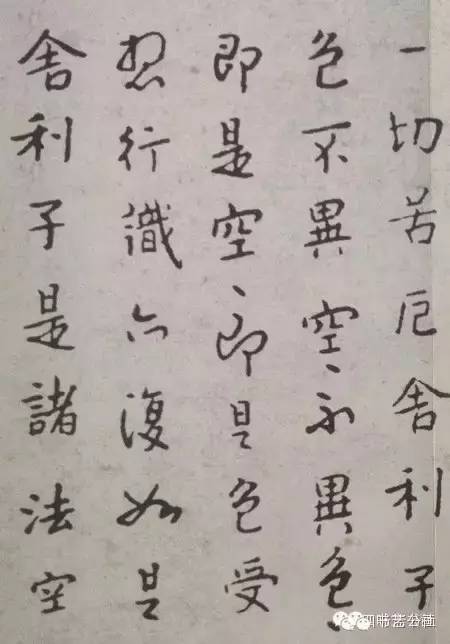 一切苦厄舍利子
色不異空、不異色、
即是空、即是色受
想行識亦復如是
舍利子是諸法空